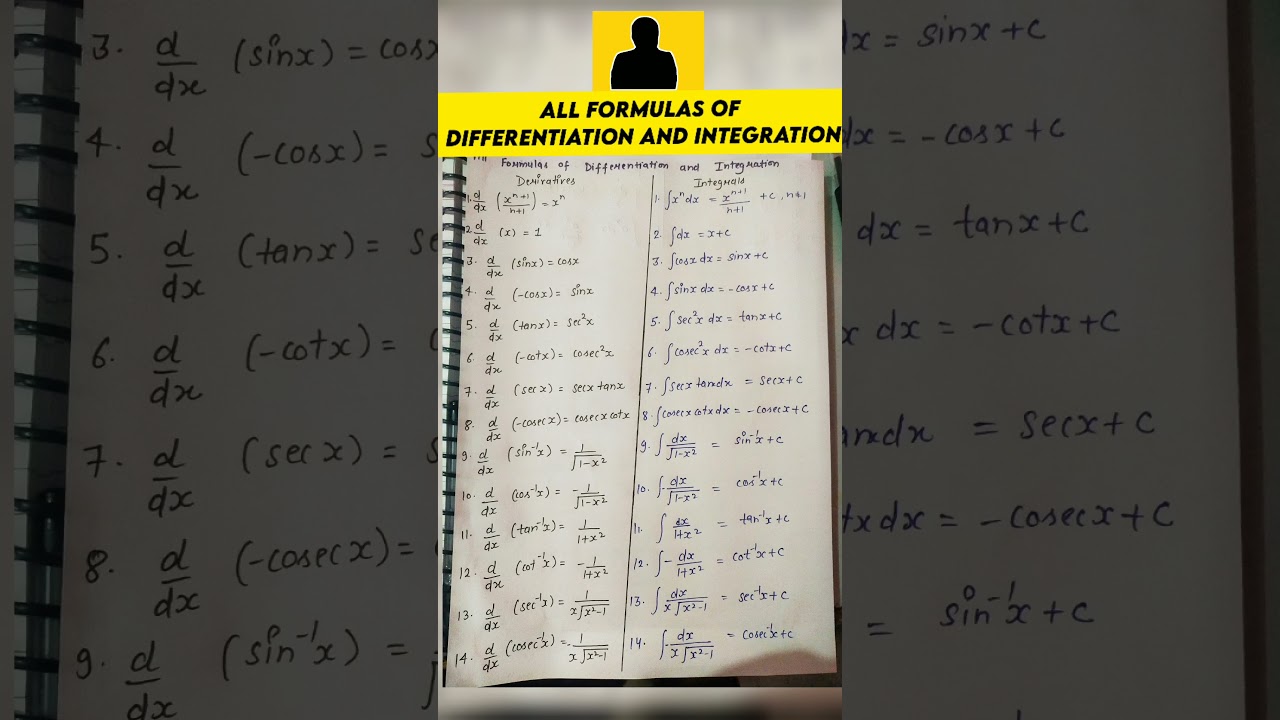 ALL FORMULAS OF
DIFFERENTIATION AND INTEGRATION
Formulas of Differentiation and Integration
Derivatives
1. d/dx (x^(n+1)/(n+1)) = x^n
2. d/dx (x) = 1
3. d/dx (sinx) = cosx
4. d/dx (-cosx) = sinx
5. d/dx (tanx) = sec²x
6. d/dx (-cotx) = cosec²x
7. d/dx (secx) = secx tanx
8. d/dx (-cosecx) = cosecx cotx
9. d/dx (sin⁻¹x) = 1/√(1-x²)
10. d/dx (cos⁻¹x) = -1/√(1-x²)
11. d/dx (tan⁻¹x) = 1/(1+x²)
12. d/dx (cot⁻¹x) = -1/(1+x²)
13. d/dx (sec⁻¹x) = 1/(x√(x²-1))
14. d/dx (cosec⁻¹x) = -1/(x√(x²-1))
Integrals
1. ∫x^n dx = x^(n+1)/(n+1) + c, n≠1
2. ∫dx = x+c
3. ∫cosx dx = sinx+c
4. ∫sinx dx = -cosx+c
5. ∫sec²x dx = tanx+c
6. ∫cosec²x dx = -cotx+c
7. ∫secx tanxdx = secx+c
8. ∫cosecx cotx dx = -cosecx+c
9. ∫dx/√(1-x²) = sin⁻¹x+c
10. ∫-dx/√(1-x²) = cos⁻¹x+c
11. ∫dx/(1+x²) = tan⁻¹x+c
12. ∫-dx/(1+x²) = cot⁻¹x+c
13. ∫dx/(x√(x²-1)) = sec⁻¹x+c
14. ∫-dx/(x√(x²-1)) = cosec⁻¹x+c
3. d/dx (sinx) = cosx
4. d/dx (-cosx) = s
5. d/dx (tanx) = se
6. d/dx (-cotx) =
7. d/dx (secx) = s
8. d/dx (-cosecx) =
9. d/dx (sin⁻¹x) =
dx = sinx+c
dx = -cosx+c
dx = tanx+c
x dx = -cotx+c
anxdx = secx+c
tx dx = -cosecx+c
= sin⁻¹x+c